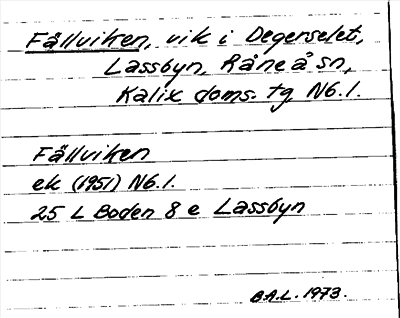 Fällviken, vik i Degerselet,
Lassbyn, Råneå sn,
Kalix doms. tg, N6.1.
Fällviken
ek (1951) N6.1.
25 L Boden 8 e Lassbyn
B.A.L. 1973.